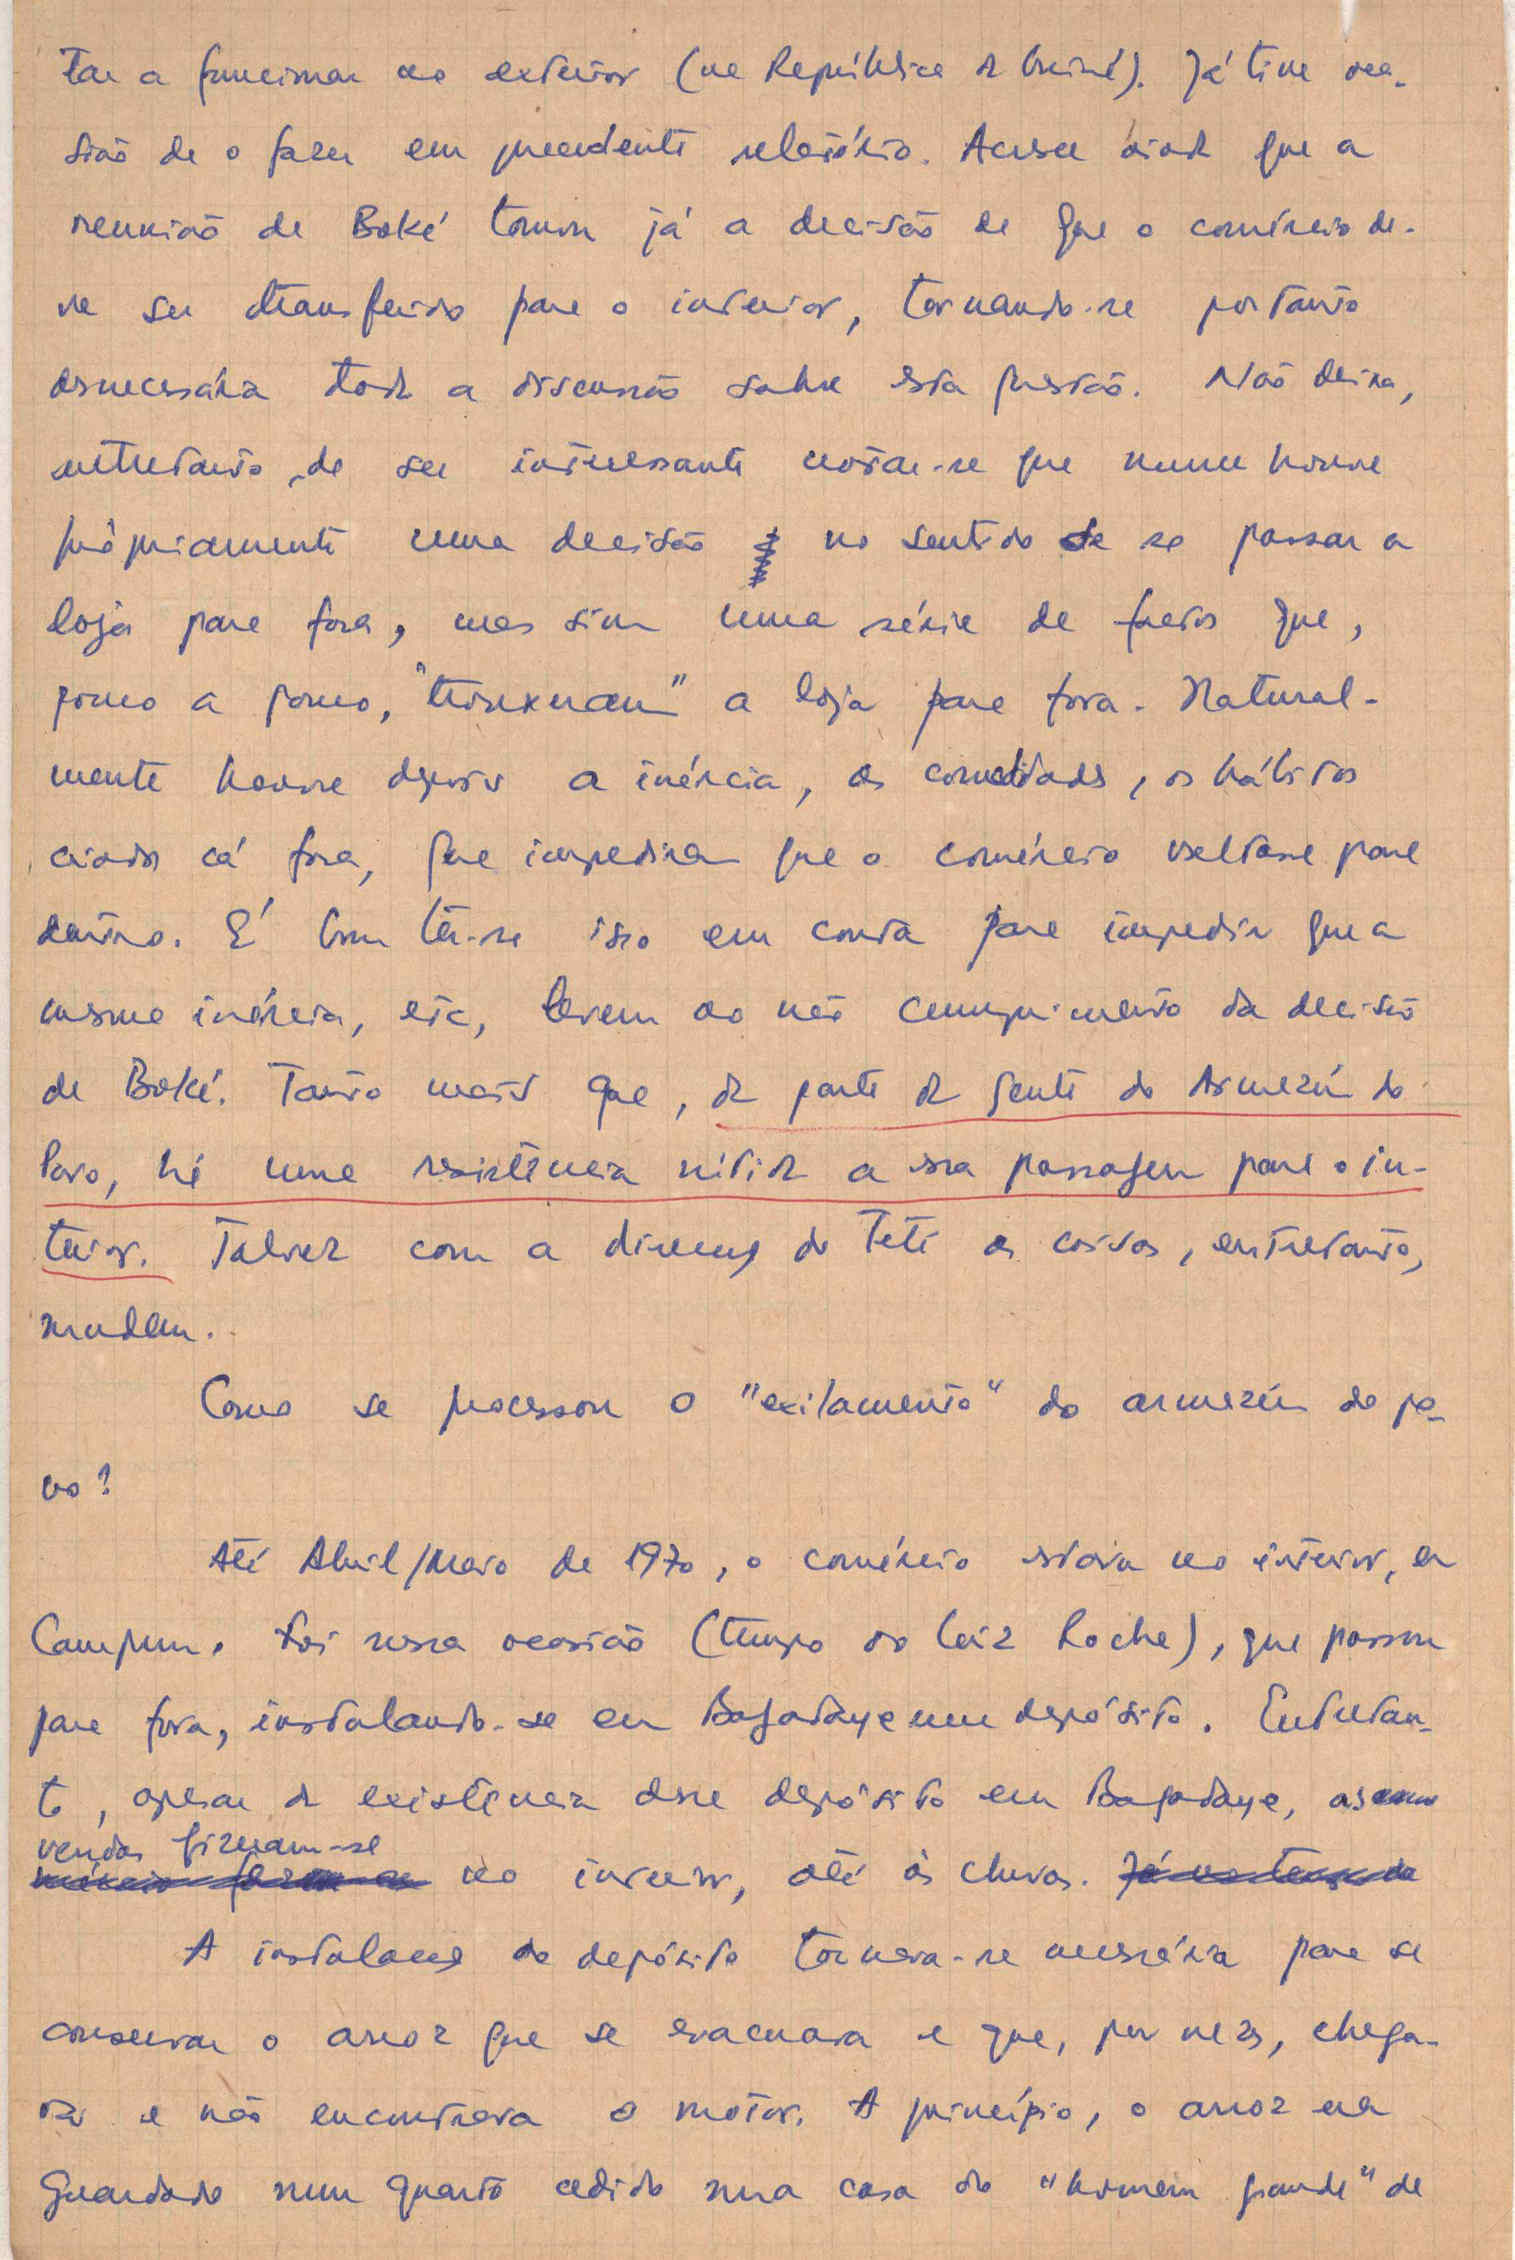 tar a funcionar no exterior (na República da Guiné). Já tive oca-
sião de o fazer em precedente relatório. Acresce ainda que a
reunião de Boké tomou já a decisão de que o comércio de-
ve ser transferido para o interior, tornando-se portanto
desnecessária toda a discussão sobre esta questão. Não deixa,
entretanto, de ser interessante notar-se que nunca houve
pròpriamente uma decisão no sentido de se passar a
loja para fora, mas sim uma série de factos que,
pouco a pouco, "trouxeram" a loja para fora. Natural-
mente houve depois a inércia, as comodidades, os hábitos
criados cá fora, que impediram que o comércio voltasse para
dentro. É bom ter-se isso em conta para impedir que a
mesma inércia, etc, levem ao não cumprimento da decisão
de Boké. Tanto mais que, da parte da gente do Armazém do
Povo, há uma resistência nítida a essa passagem para o in-
terior. Talvez com a direcção do Teti as coisas, entretanto,
mudem.
Como se processou o "exilamento" do armazém do po-
vo?
Até Abril/Maio de 1970, o comércio estava no interior, em
Campum. Foi nessa ocasião (tempo do Luiz Rocha), que passou
para fora, instalando-se em Bagadaye um depósito. Entretan-
to, apesar da existência desse depósito em Bagadaye, as
vendas fizeram-se no interior, até às chuvas.
A instalação do depósito tornava-se necessária para se
conservar o arroz que se evacuava e que, por vezes, chega-
va e não encontrava o motor. A princípio, o arroz era
guardado num quarto cedido numa casa do "homem grande" de